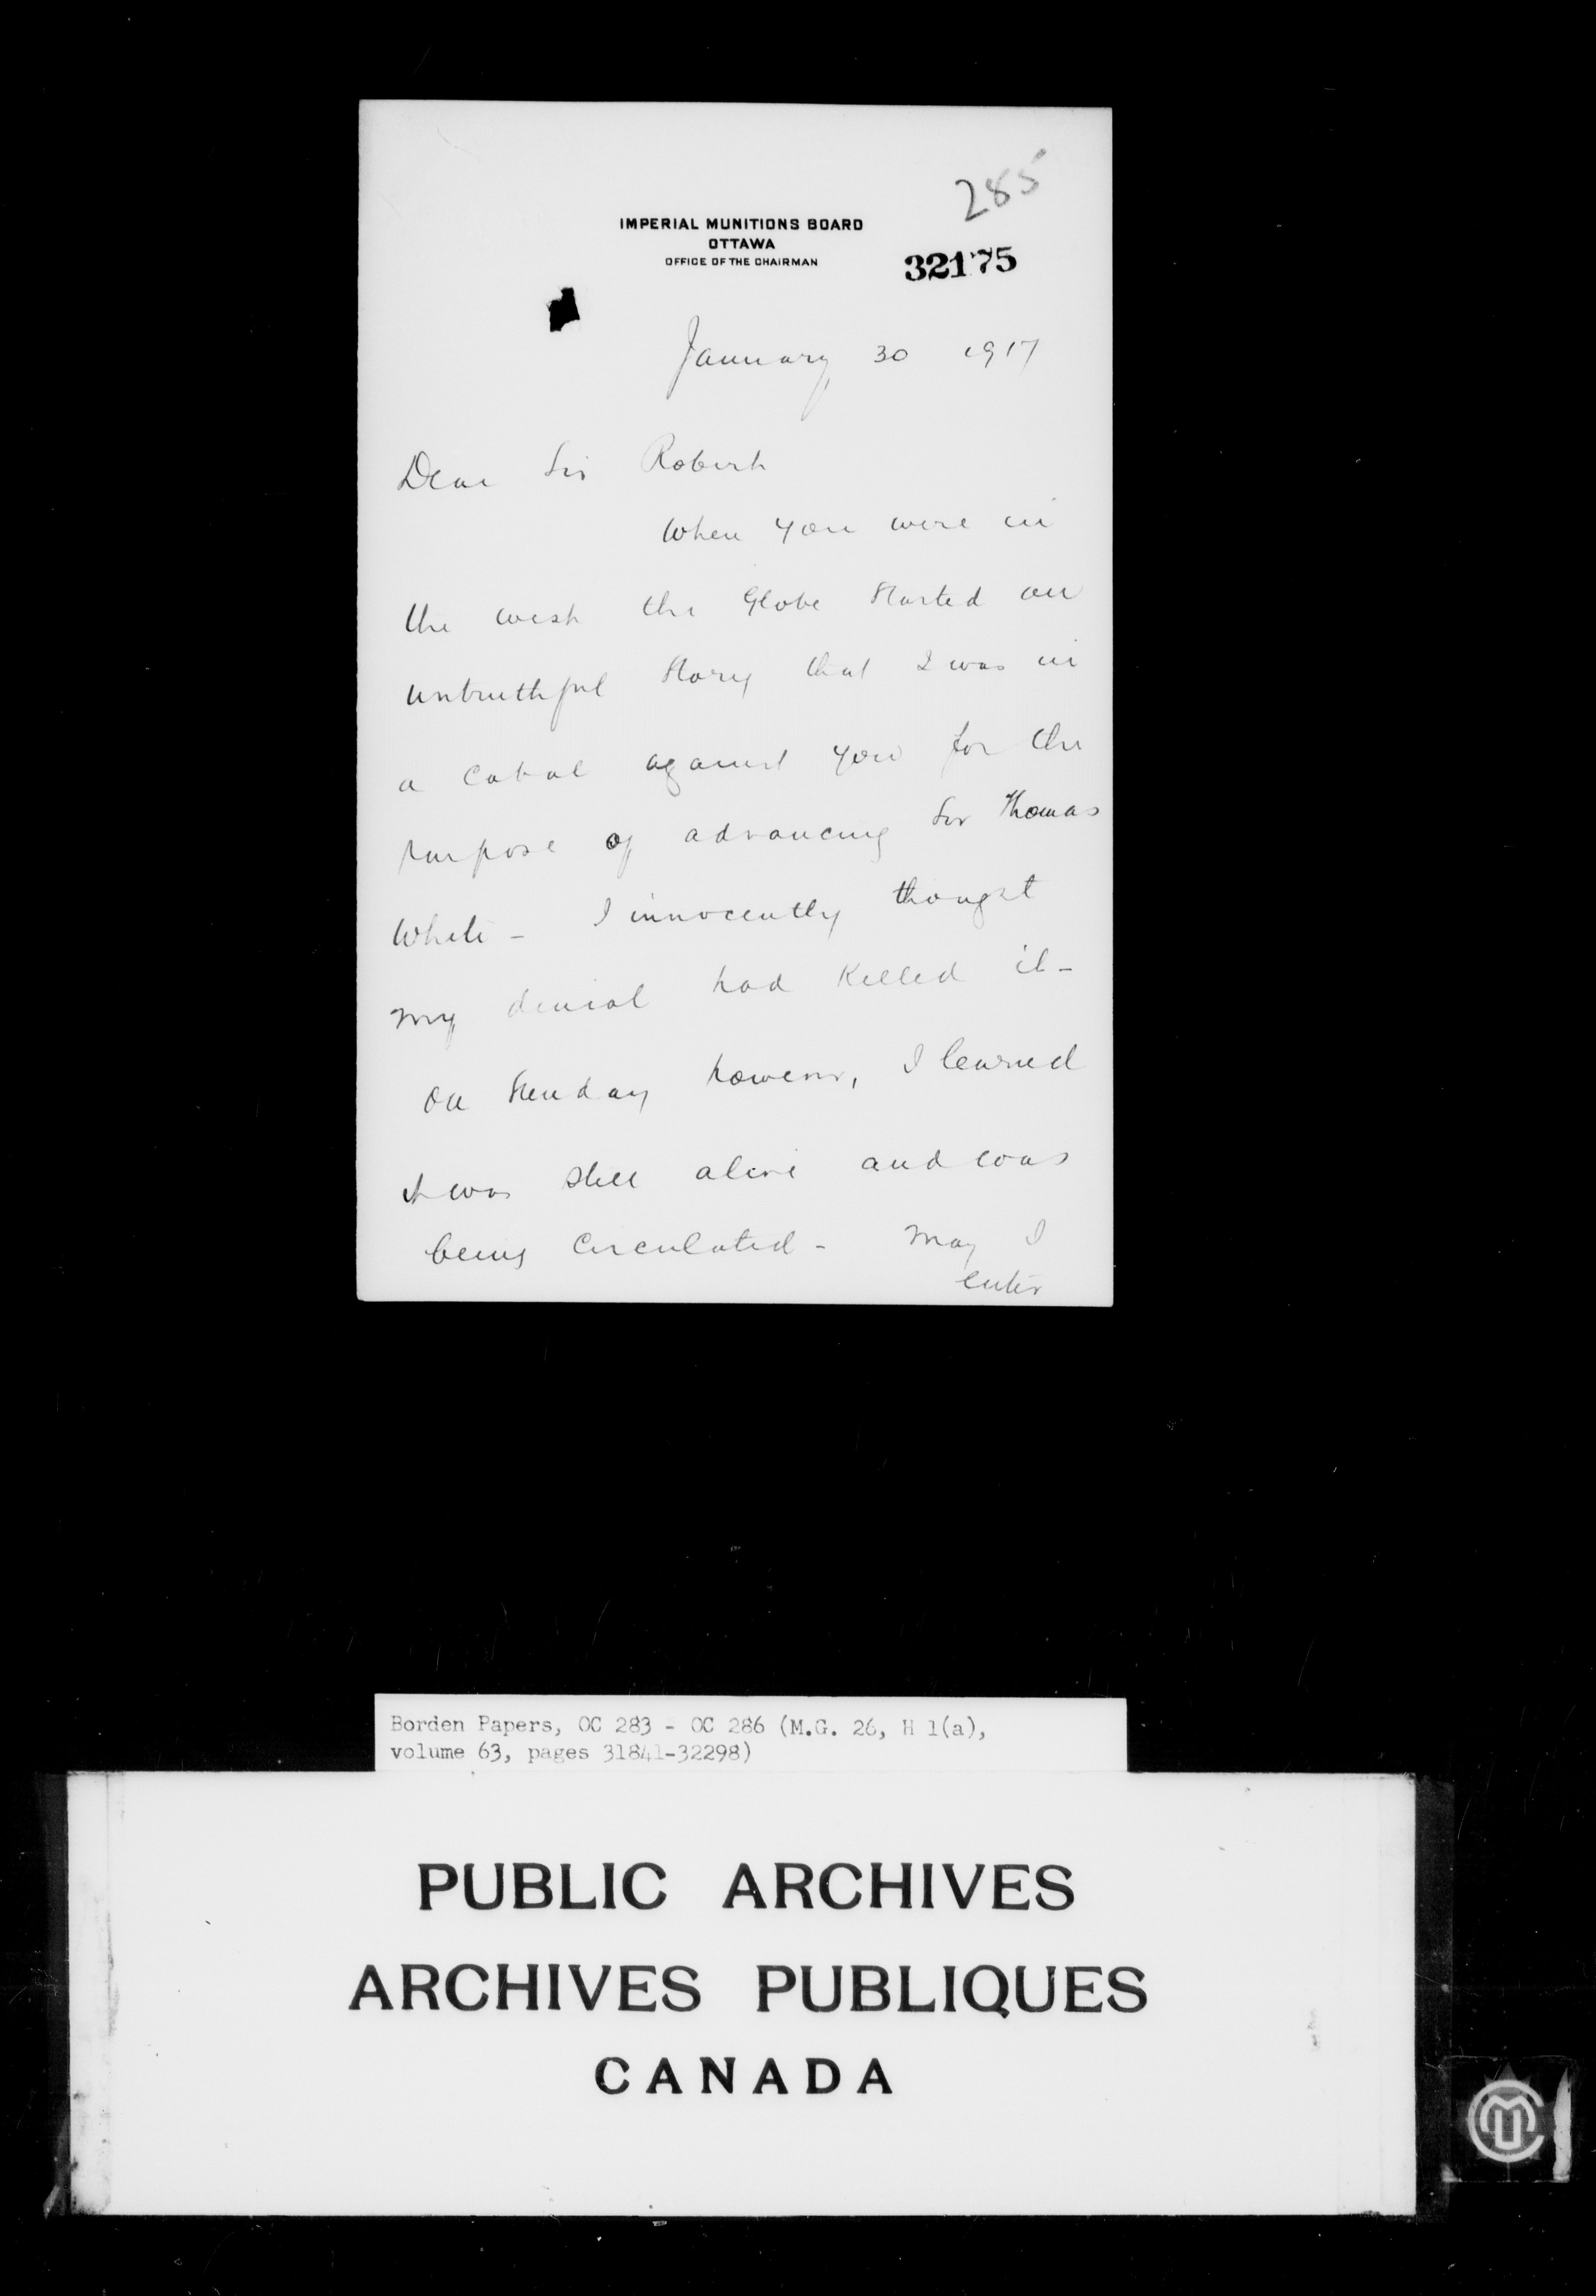 285
IMPERIAL MUNITIONS BOARD
OTTAWA
OFFICE OF THE CHAIRMAN
32175
January 30 1917
Dear Sir Robert
When you were in
the west the Globe started an
untruthful story that I was in
a cabal against you for the
purpose of advancing Sir Thomas
White - I innocently thought
my denial had killed it -
On Sunday however, I learned
it was still alive and was
being circulated - May I
enter
Borden Papers, OC 283 - OC 286 (M.G. 26, H 1(a),
volume 63, pages 31841-32298)
PUBLIC ARCHIVES
ARCHIVES PUBLIQUES
CANADA